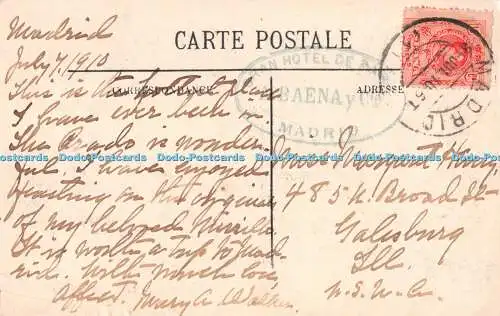 Madrid
July 7, 1910
CARTE POSTALE
CORRESPONDANCE
ADRESSE
GRAN HOTEL DE
BAENA y Cia
MADRID
MADRID
This is the hottest place
I have ever been in.
The Prado is wonder-
ful. I have enjoyed
feasting on the originals
of my beloved Murillo.
It is worth a trip to Mad-
rid. With much love,
Affect. Mary A. Walker.
Miss
485 N. Broad St
Galesburg
Ill.
U.S.A.
Dodo-Postcards Dodo-Postcards Dodo-Postcards Dodo-Postcards Dodo-Postcards